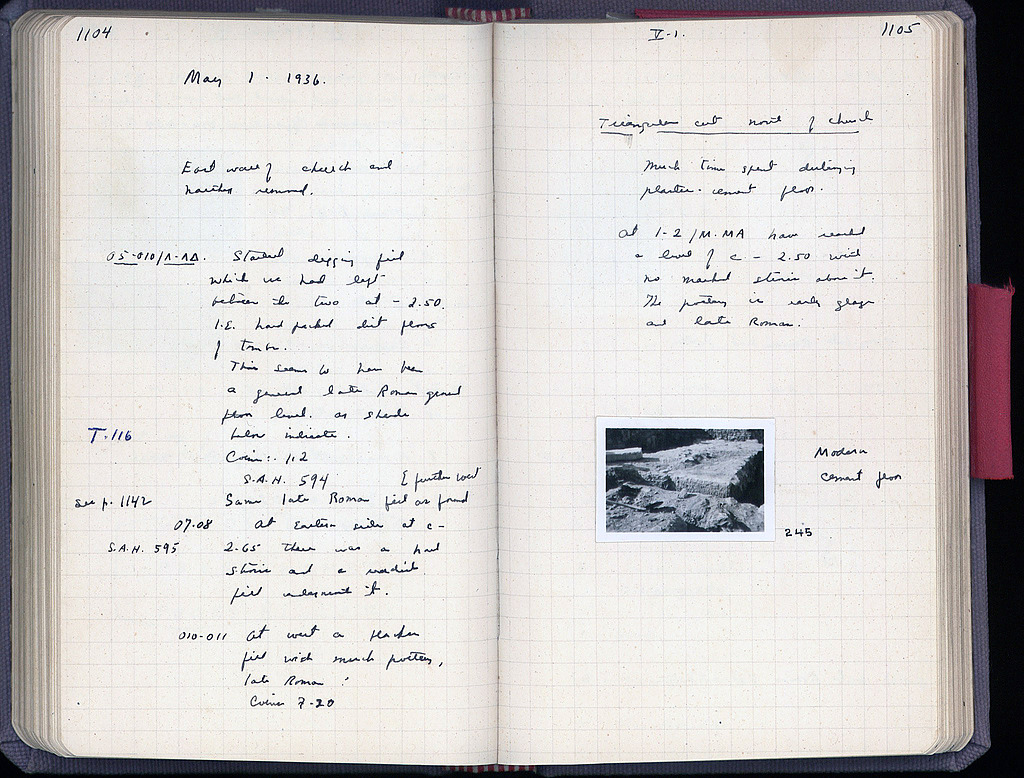 1104
May 1. 1936.
East wall of church and
narthex removed.
05-010/Λ-ΛΔ. Started digging fill
which we had left
between the two at -2.50.
I.E. hard packed dirt floors
of tombs.
This seems to have been
a general late Roman ground
floor level. as sherds
below indicate.
T.116
Coins: 1-2
S.A.H. 594
E further west
see p. 1142
Same late Roman fill as found
07-08 at eastern side at c-
S.A.H. 595
2.65 there was a hard
and a
fill underneath it.
010-011 At west a blacker
fill with much pottery,
late Roman:
Coins 7-20
V-1.
1105
Triangular cut north of church
Much time spent
plaster-cement floor.
At 1-2/M-MA have reached
a level of c - 2.50 with
no marked above it.
The pottery is early glaze
and late Roman.
Modern
cement floor
245